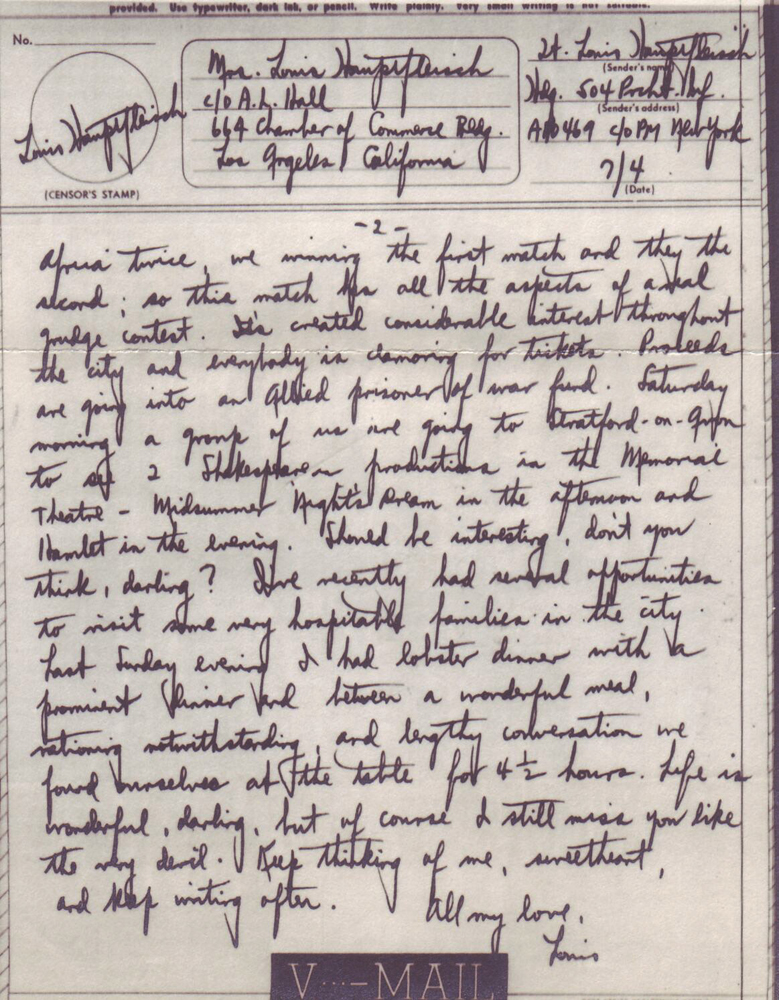 provided. Use typewriter, dark ink, or pencil. Write plainly. Very small writing is not suitable.
No.
Louis Hauptfleisch
(CENSOR'S STAMP)
Mrs. Louis Hauptfleisch
c/o A.L. Hall
664 Chamber of Commerce Bldg.
Los Angeles, California
Lt. Louis Hauptfleisch
(Sender's name)
Hdq. 504 Prcht. Inf.
(Sender's address)
APO 469 c/o PM New York
7/4
(Date)
-2-
Africa twice, we winning the first match and they the
second; so this match has all the aspects of a real
grudge contest. It's created considerable interest throughout
the city and everybody is clamoring for tickets. Proceeds
are going into an Allied prisoner of war fund. Saturday
morning a group of us are going to Stratford-on-Avon
to see 2 Shakespearean productions in the Memorial
Theatre - Midsummer Night's Dream in the afternoon and
Hamlet in the evening. Should be interesting, don't you
think, darling? I've recently had several opportunities
to visit some very hospitable families in the city.
Last Sunday evening I had lobster dinner with a
prominent and between a wonderful meal,
rationing notwithstanding, and lengthy conversation we
found ourselves at the table for 4½ hours. Life is
wonderful, darling, but of course I still miss you like
the very devil. Keep thinking of me, sweetheart,
and keep writing often. All my love,
Louis
V···—MAIL